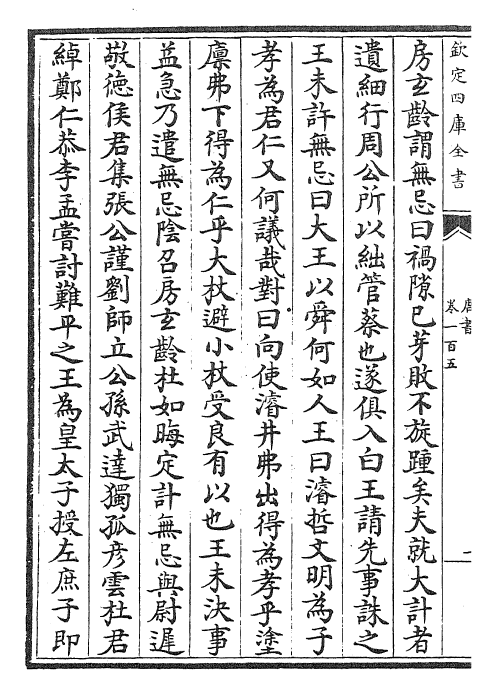 欽定四庫全書
唐書
卷一百五
二
房玄齡謂無忌曰禍隙已芽敗不旋踵矣夫就大計者
遺細行周公所以絀管蔡也遂俱入白王請先事誅之
王未許無忌曰大王以舜何如人王曰濬哲文明為子
孝為君仁又何議哉對曰向使濬井弗出得為孝乎塗
廩弗下得為仁乎大杖避小杖受良有以也王未決事
益急乃遣無忌陰召房玄齡杜如晦定計無忌與尉遲
敬徳侯君集張公謹劉師立公孫武達獨孤彦雲杜君
綽鄭仁恭李孟嘗討難平之王為皇太子授左庶子即